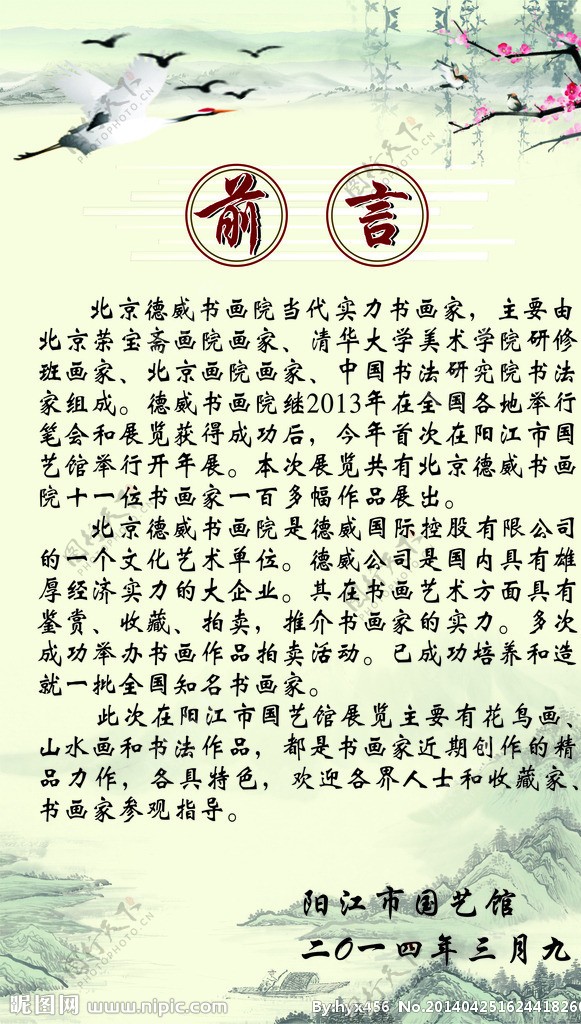 前言
北京德威书画院当代实力书画家，主要由
北京荣宝斋画院画家、清华大学美术学院研修
班画家、北京画院画家、中国书法研究院书法
家组成。德威书画院继2013年在全国各地举行
笔会和展览获得成功后，今年首次在阳江市国
艺馆举行开年展。本次展览共有北京德威书画
院十一位书画家一百多幅作品展出。
北京德威书画院是德威国际控股有限公司
的一个文化艺术单位。德威公司是国内具有雄
厚经济实力的大企业。其在书画艺术方面具有
鉴赏、收藏、拍卖，推介书画家的实力。多次
成功举办书画作品拍卖活动。已成功培养和造
就一批全国知名书画家。
此次在阳江市国艺馆展览主要有花鸟画、
山水画和书法作品，都是书画家近期创作的精
品力作，各具特色，欢迎各界人士和收藏家、
书画家参观指导。
阳江市国艺馆
二〇一四年三月九
昵图网 www.nipic.com By:hyx456 No.20140425162441826